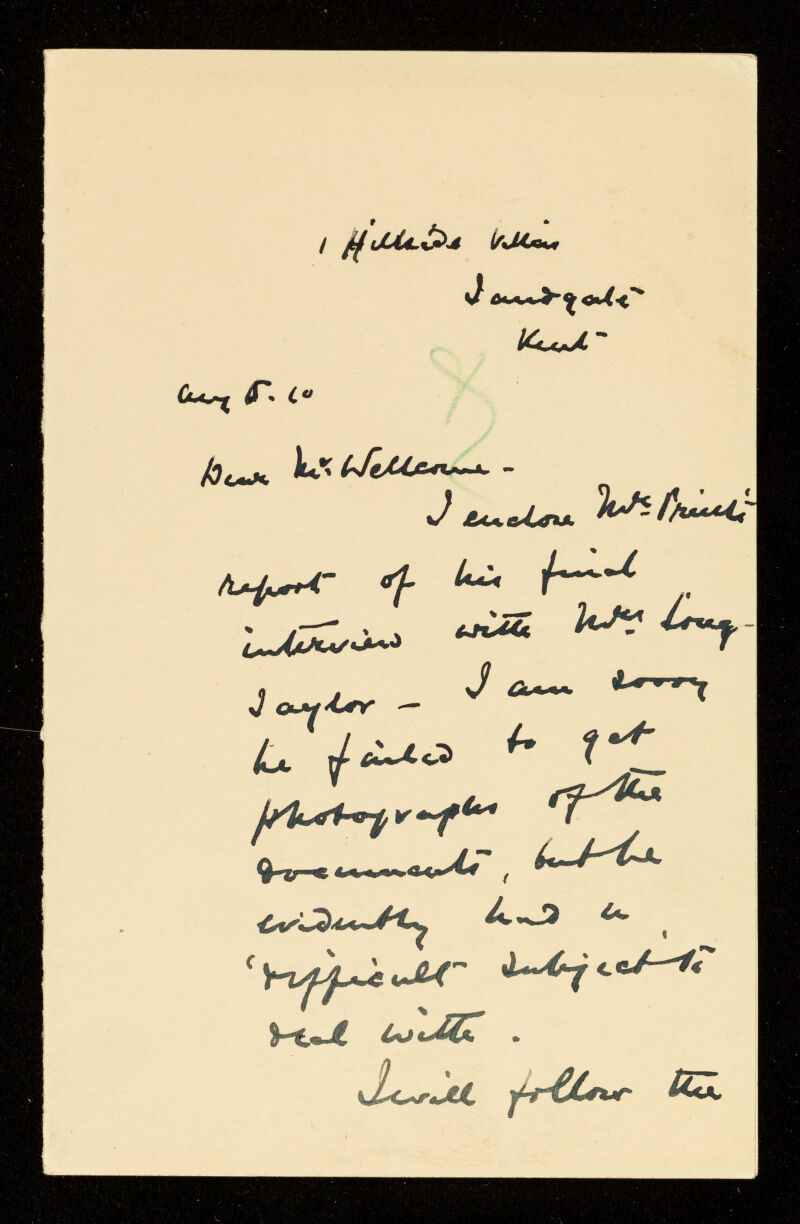 1 Hillside Villas
Sandgate
Kent
Aug 5. 10
Dear Mr. Wellcome -
I enclose Mr.
report of his final
interview with Mrs. Long-
Taylor - I am sorry
he failed to get
photographs of the
documents, but he
evidently had a
'difficult subject' to
deal with.
I will follow the